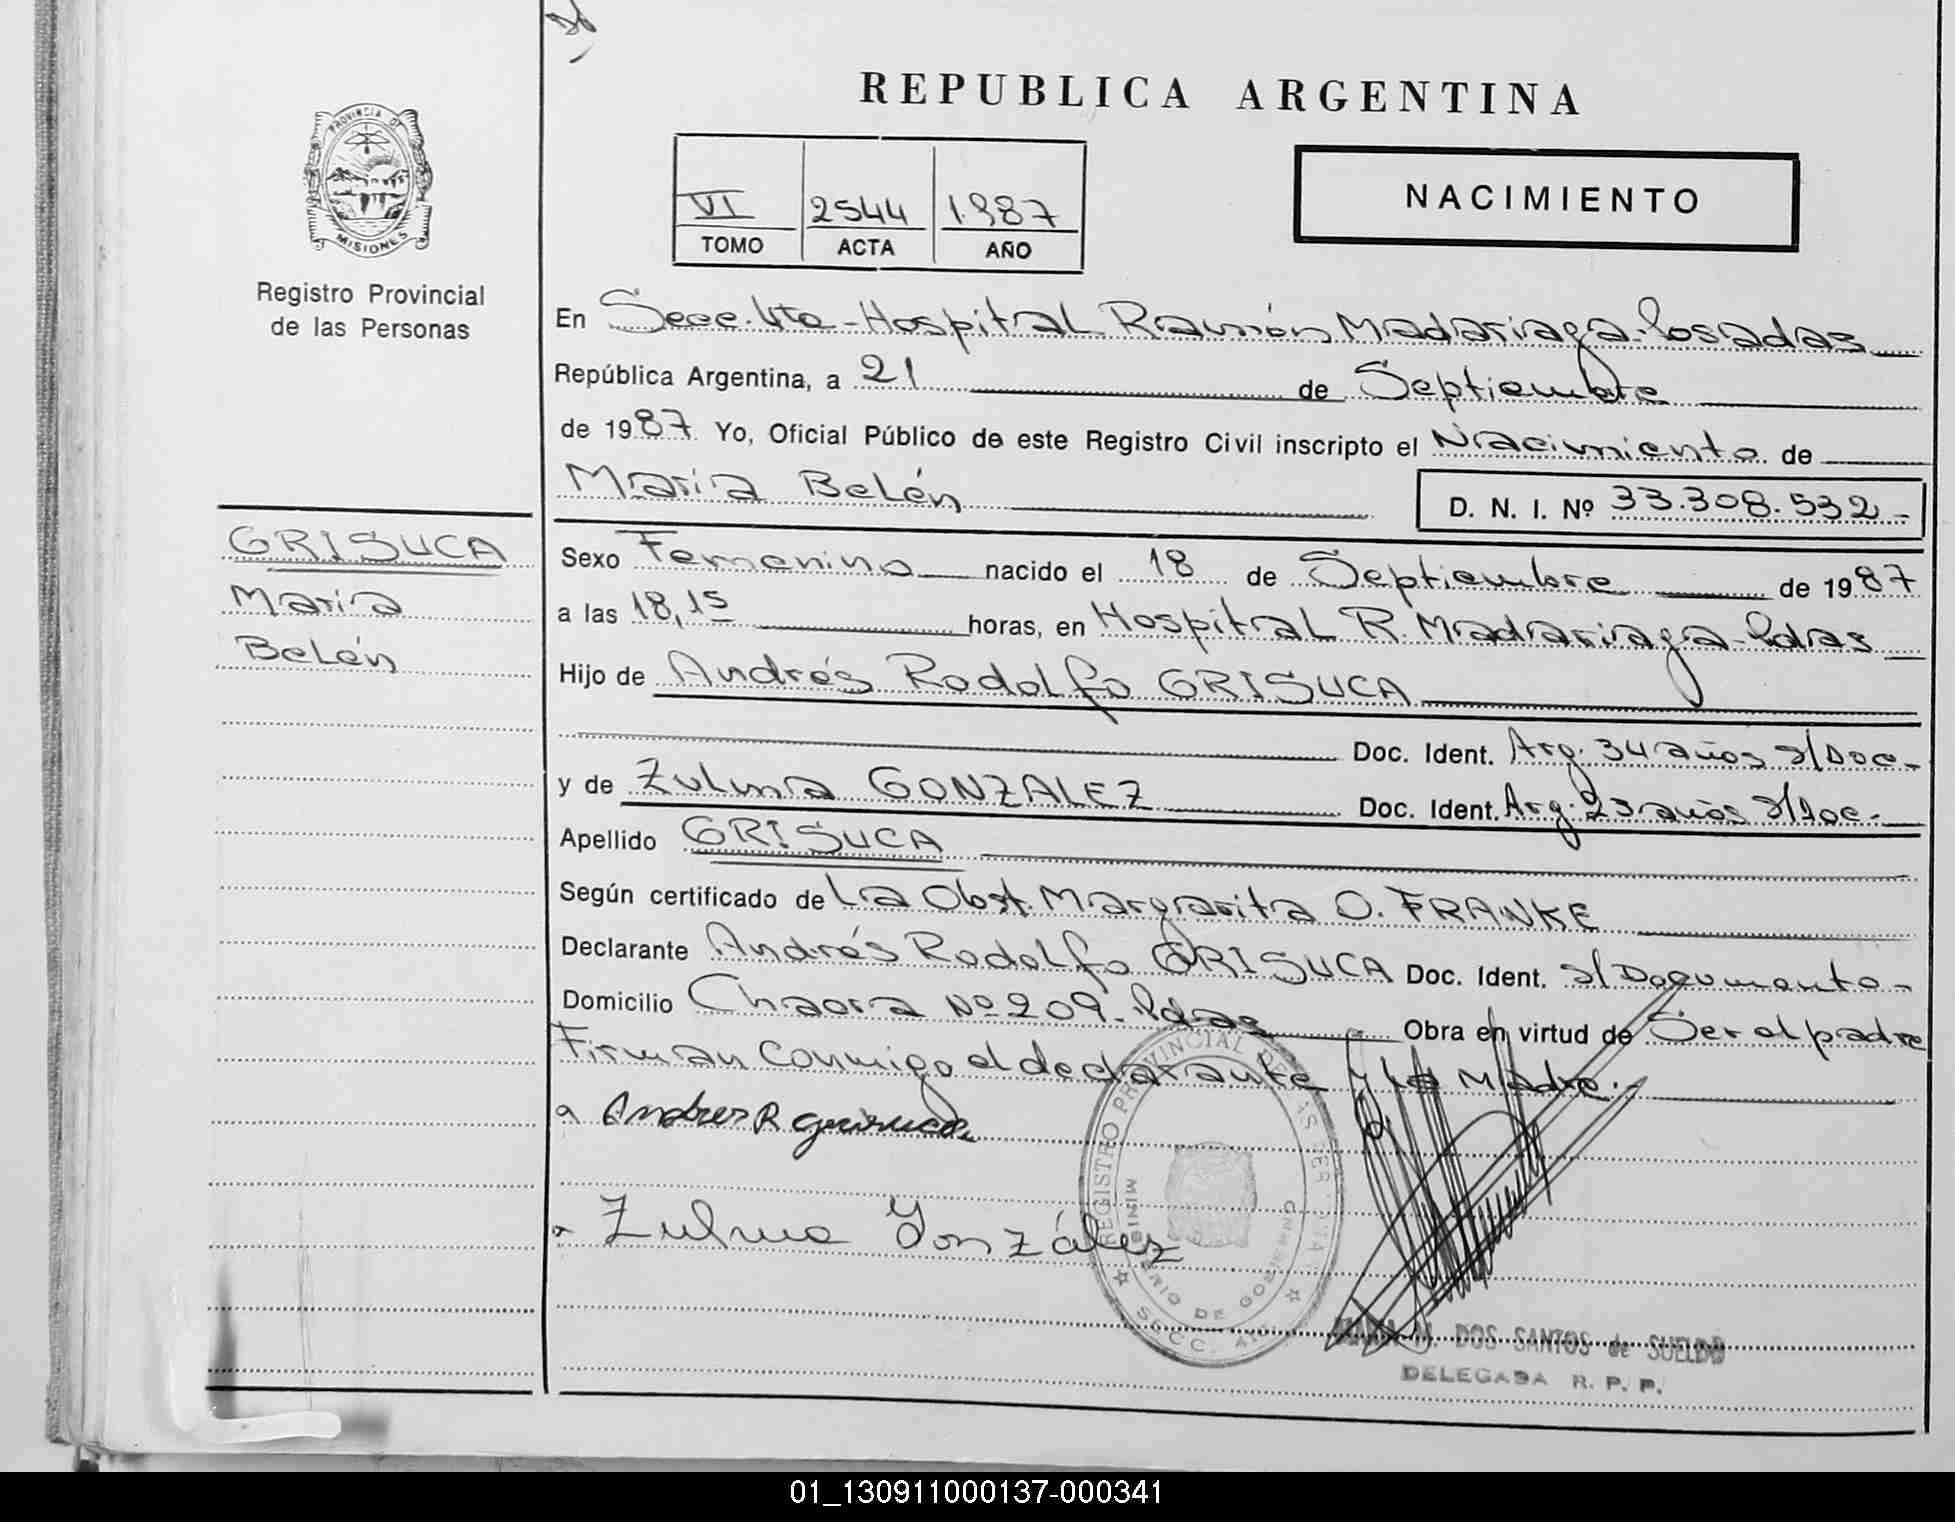 REPUBLICA ARGENTINA
PROVINCIA DE
MISIONES
Registro Provincial
de las Personas
VI 2544 1.987
TOMO ACTA AÑO
NACIMIENTO
En Secc. 4ta - Hospital Ramón Madariaga - Posadas
República Argentina, a 21 de Septiembre
de 1987 Yo, Oficial Público de este Registro Civil inscripto el Nacimiento de
María Belén D. N. I. Nº 33.308.532-
GRISUCA
María
Belén
Sexo Femenino nacido el 18 de Septiembre de 1987
a las 18,15 horas, en Hospital R. Madariaga - Pdas
Hijo de Andrés Rodolfo GRISUCA
Doc. Ident. Arg. 34 años s/Doc-
y de Zulma GONZALEZ Doc. Ident. Arg. 23 años s/Doc-
Apellido GRISUCA
Según certificado de La Obst. Margarita O. FRANKE
Declarante Andrés Rodolfo GRISUCA Doc. Ident. s/Documento-
Domicilio Nº 209 - Pdas Obra en virtud de Ser el padre
Firman conmigo el declarante y la Madre.-
Andres R grisuca
Zulma González
REGISTRO PROVINCIAL DE LAS PERSONAS
MINISTERIO DE GOBIERNO
SECC.
M. DOS SANTOS de SUELDO
DELEGADA R. P. P.
01_130911000137-000341